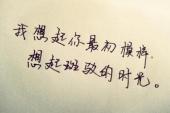 我想起你最初模样，
想起斑驳的时光。